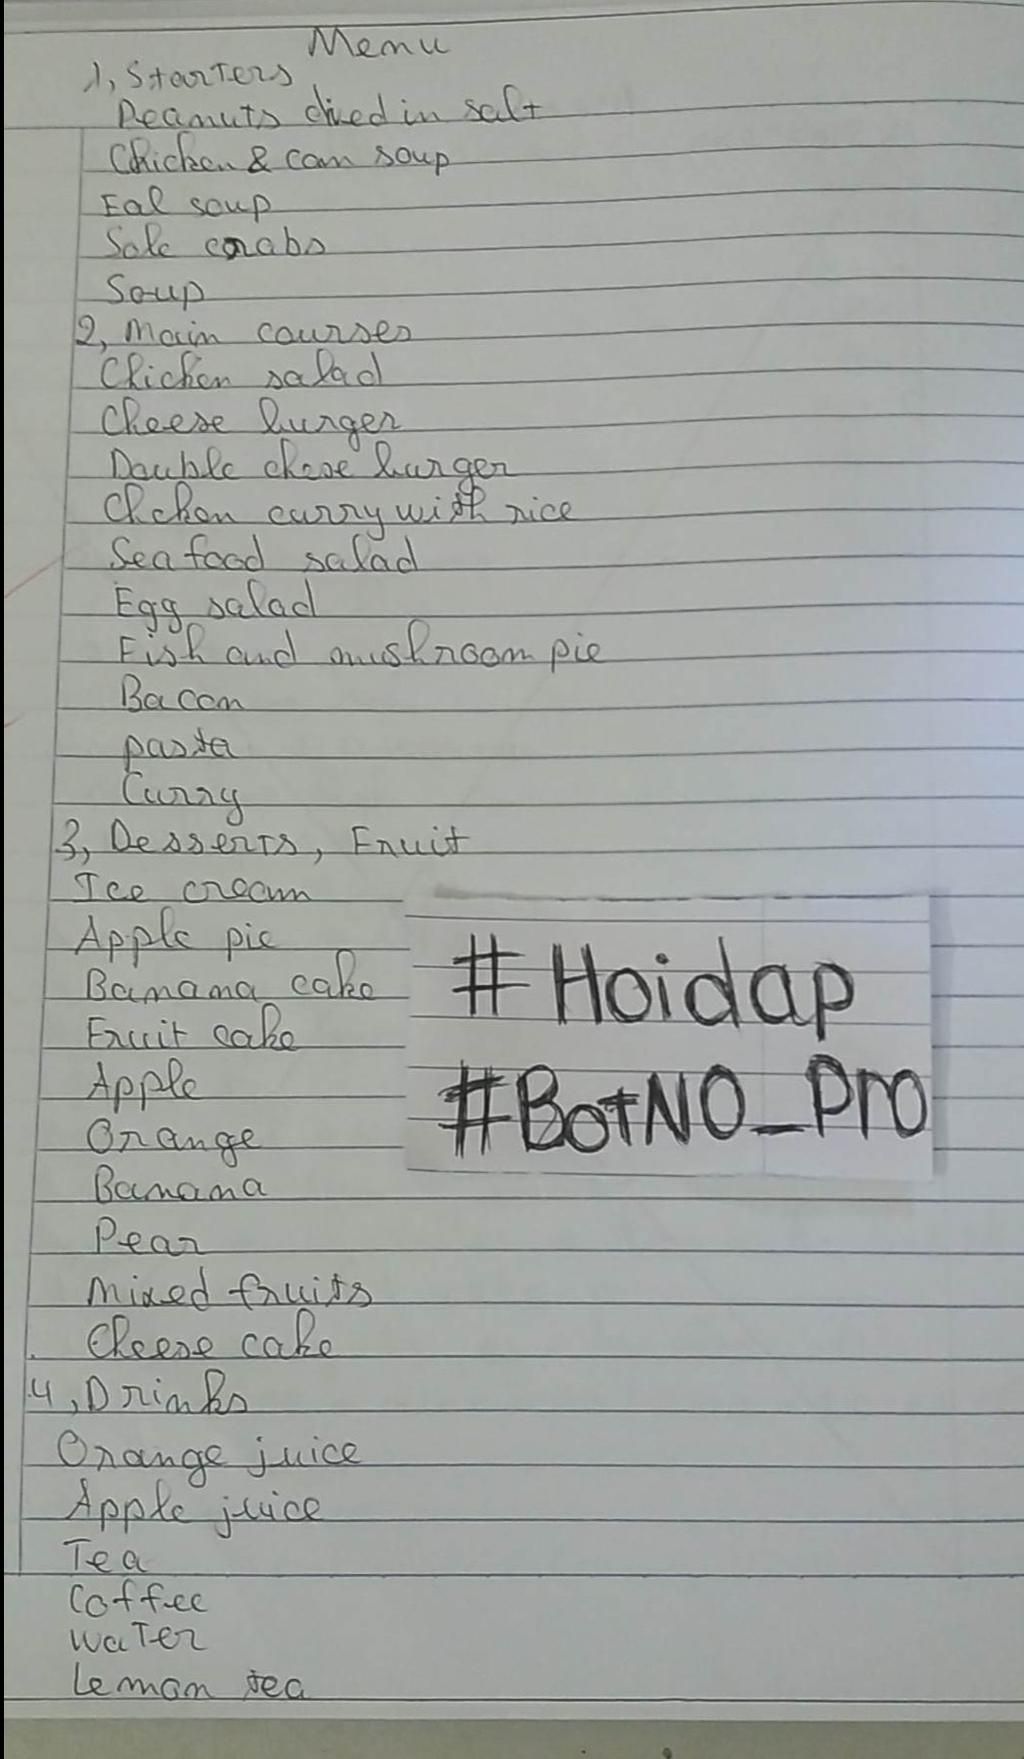 Menu
1, Starters
Peanuts dived in salt
Chicken & corn soup
Eal soup
Sole crabs
Soup
2, Main courses
Chicken salad
Cheese burger
Double chese burger
Chcken curry with rice
Sea food salad
Egg salad
Fish and mushroom pie
Bacon
pasta
Curry
3, Desserts, Fruit
Ice cream
Apple pie
Banana cake
Fruit cake
Apple
Orange
Banana
Pear
Mixed fruits
Cheese cake
4, Drinks
Orange juice
Apple juice
Tea
Coffee
Water
Lemon tea
# Hoidap
#BotNO_Pro